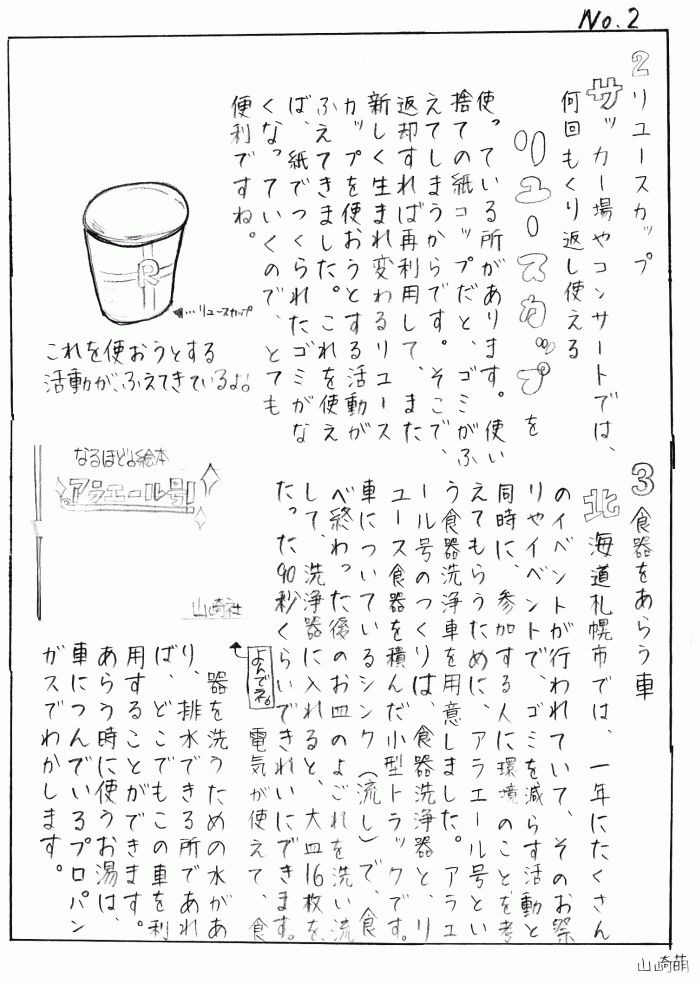 No.2
2リユースカップ
サッカー場やコンサートでは、
何回もくり返し使える
リユースカップを
使っている所があります。使い
捨ての紙コップだと、ゴミがふ
えてしまうからです。そこで、
返却すれば再利用して、また
新しく生まれ変わるリユース
カップを使おうとする活動が
ふえてきました。これを使え
ば、紙でつくられたゴミがな
くなっていくので、とても
便利ですね。
R
…リユースカップ
これを使おうとする
活動が、ふえてきているよ。
3食器をあらう車
北海道札幌市では、一年にたくさん
のイベントが行われていて、そのお祭
りやイベントで、ゴミを減らす活動と
同時に、参加する人に環境のことを考
えてもらうために、アラエール号とい
う食器洗浄車を用意しました。アラエ
ール号のつくりは、食器洗浄器と、リ
ユース食器を積んだ小型トラックです。
車についているシンク(流し)で、食
べ終わった後のお皿のよごれを洗い流
して、洗浄器に入れると、大皿16枚を、
たった90秒くらいできれいにできます。
電気が使えて、食
器を洗うための水があ
り、排水できる所であれ
ば、どこでもこの車を利
用することができます。
あらう時に使うお湯は、
車につんでいるプロパン
ガスでわかします。
よんでネ。
なるほど!絵本
アラエール号!
山崎社
山崎萌